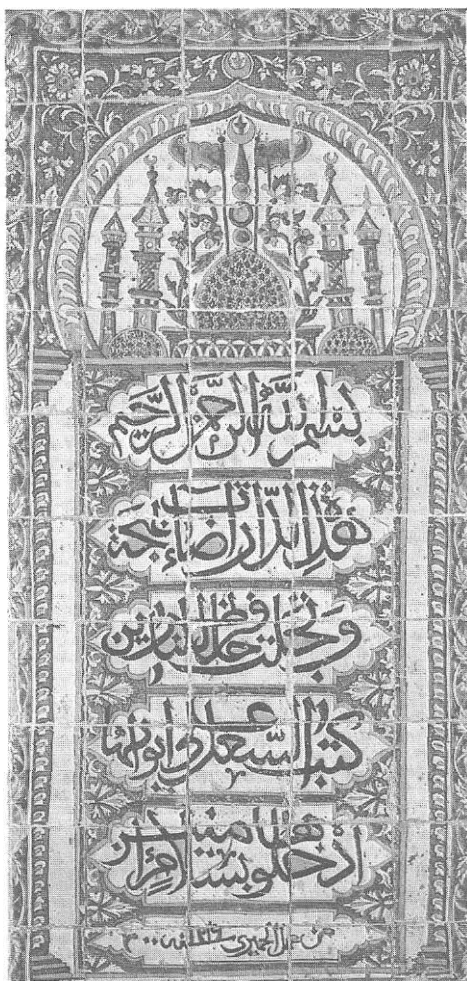 بسم الله الرحمن الرحيم
هذه الدار اضاءت بهجة
وتجلت للناظرين
كتب السعد على ابوابها
ادخلوها بسلام آمنين
من عمل